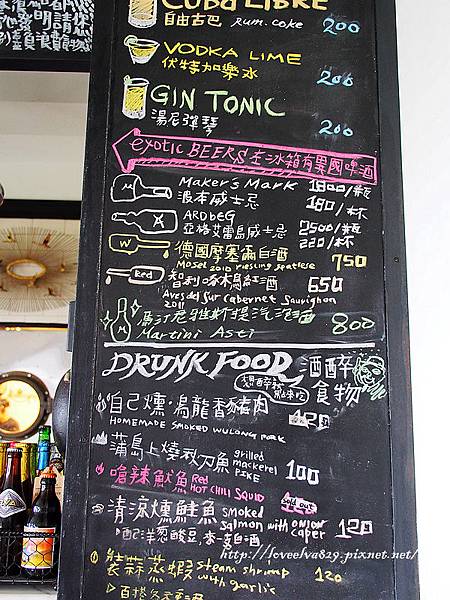 CUBA LIBRE
自由古巴 Rum. coke 200
VODKA LIME
伏特加樂水 200
GIN TONIC
湯尼彈琴 200
exotic BEERS 在冰箱有異國啤酒
Maker's Mark 1800/瓶
波本威士忌 180/杯
ARDbEG 2500/瓶
亞格艾雷島威士忌 220/杯
德國摩塞爾白酒 750
Mosel 2010 riesling spatlese
Red 智利啄木鳥紅酒 650
Aves del Sur cabernet Sauvignon
2011
馬汀尼雅斯提汽泡酒 800
Martini Asti
DRUNK FOOD 酒醉食物
自己燻·烏龍香豬肉 120
HOMEMADE SMOKED WULONG PORK
蒲島上燒秋刀魚 grilled mackerel PIKE 100
嗆辣魷魚 Red HOT CHILI SQUID
sold out
清涼燻鮭魚 smoked salmon with ONION caper 120
配洋葱酸豆,來一支白酒
蒜蒸蝦 steam shrimp with garlic 120
http://loveelva829.pixnet.net/